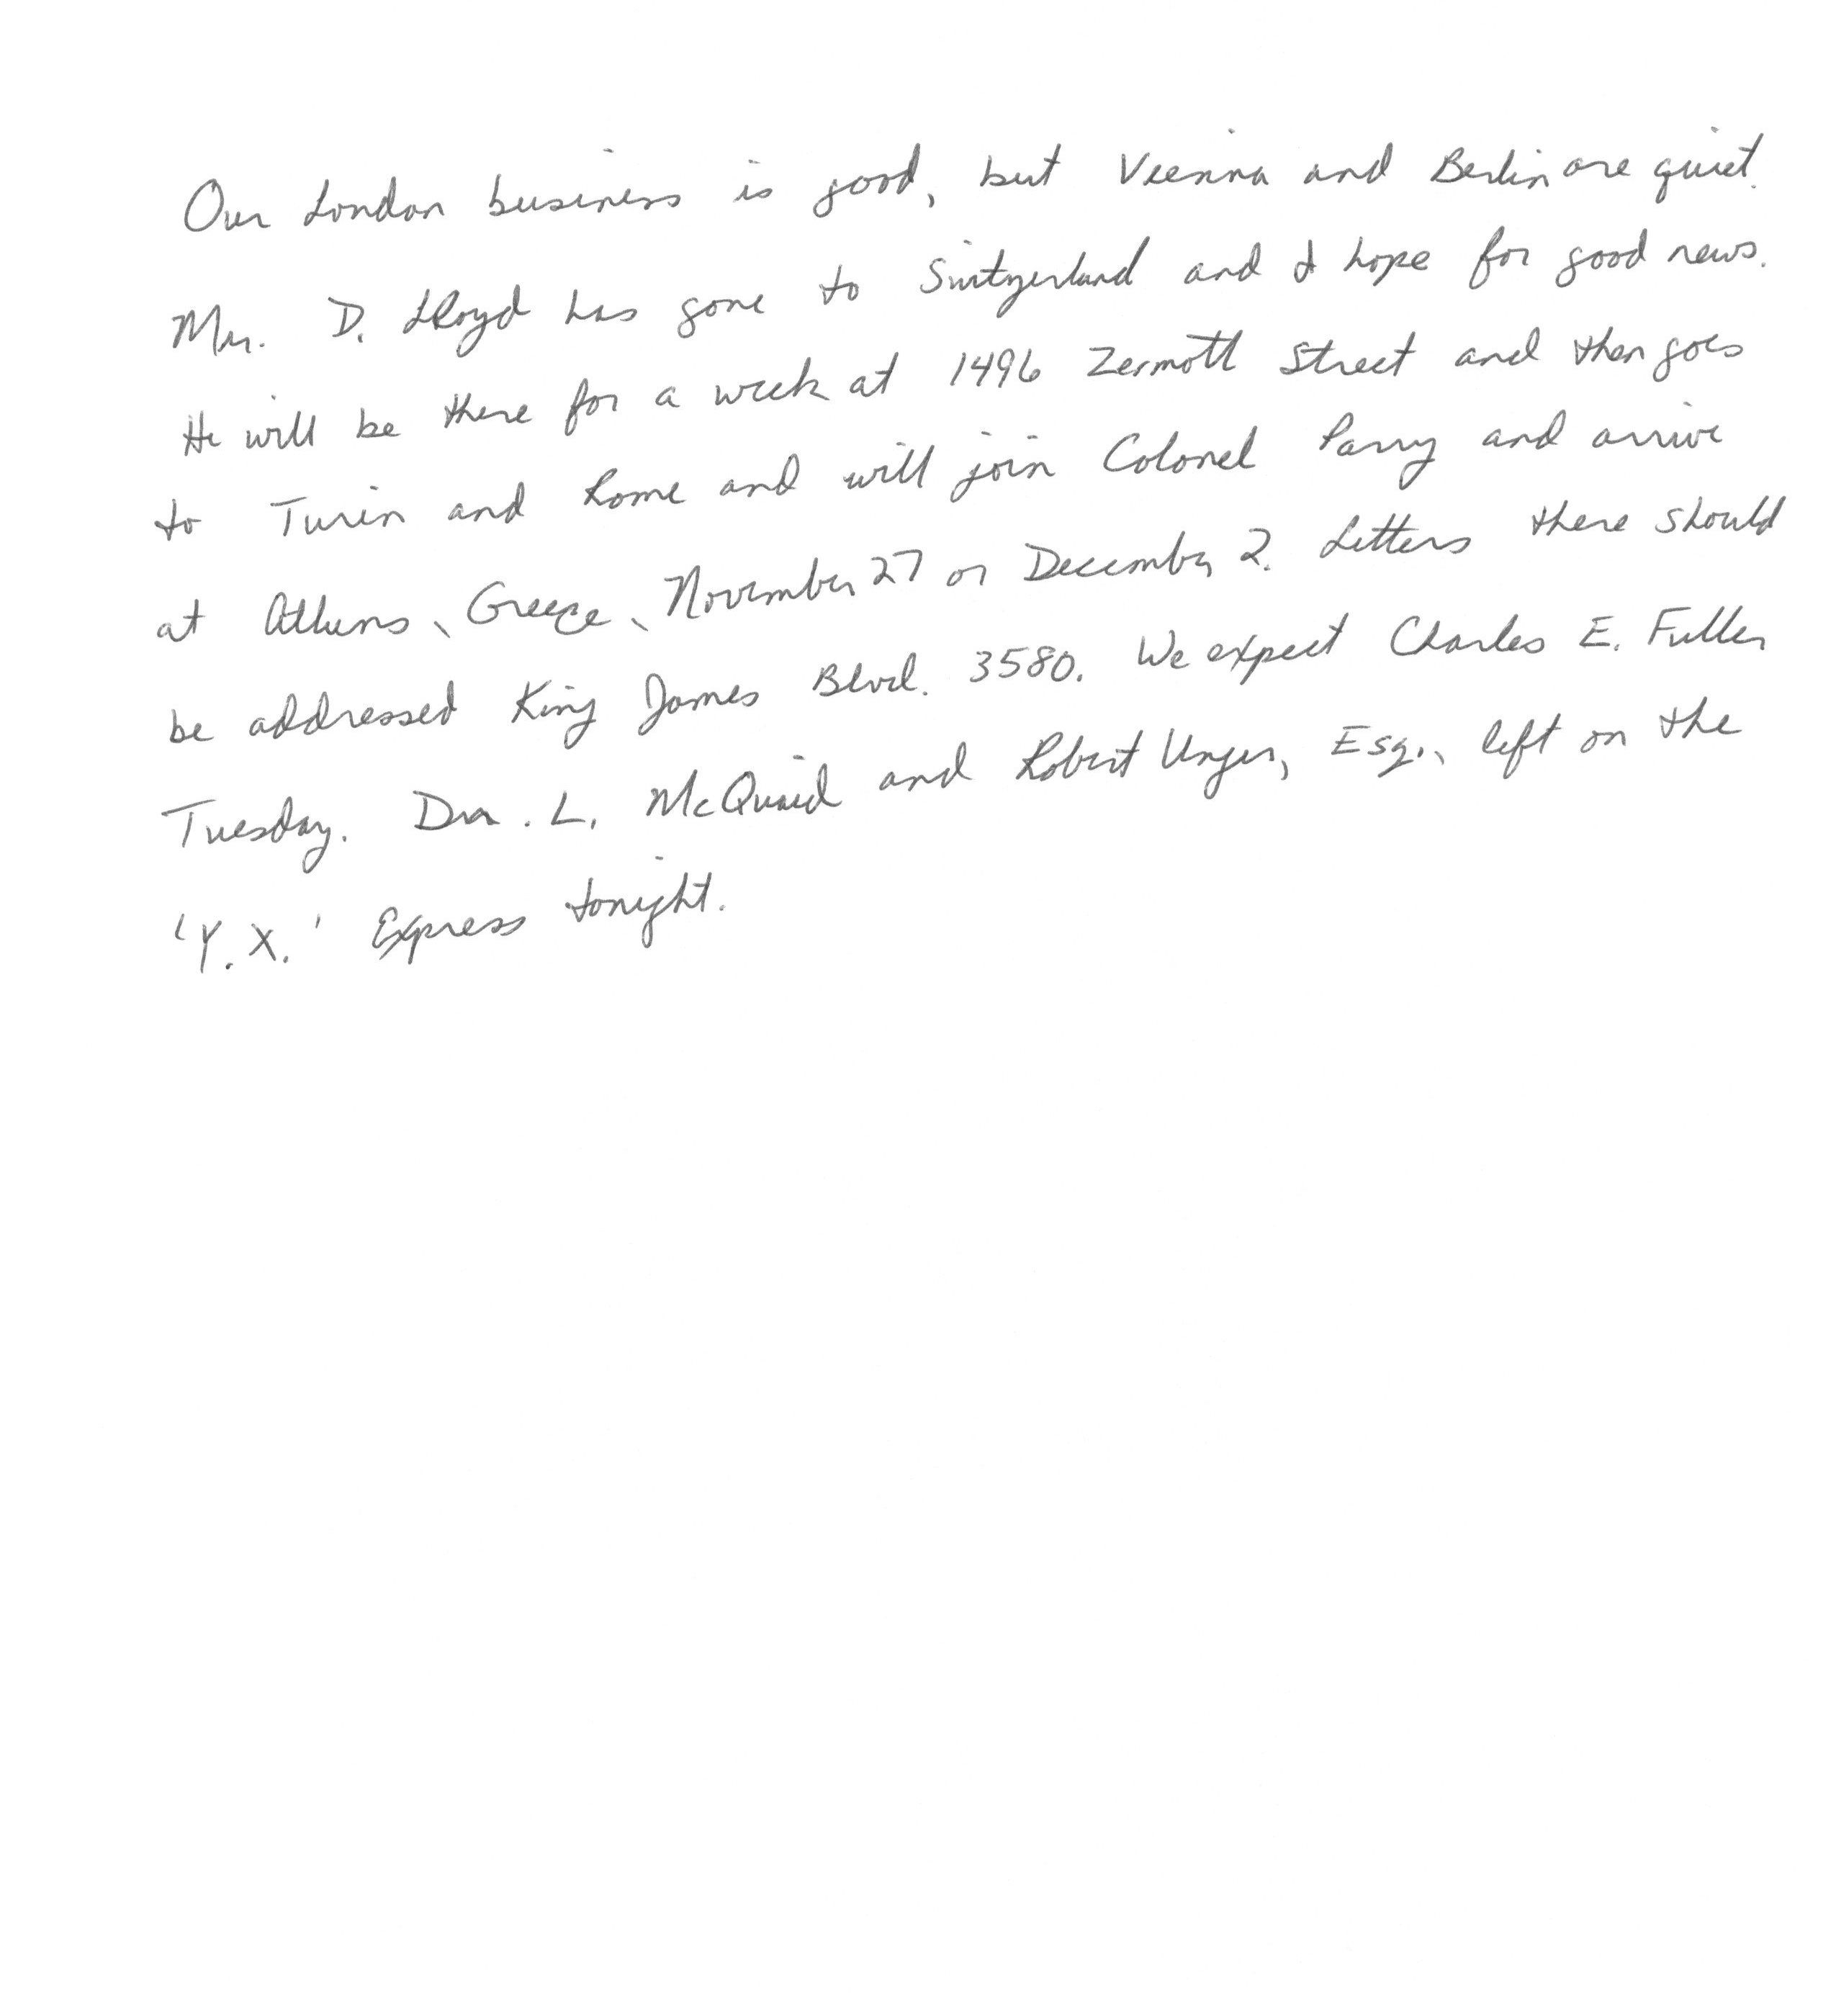 Our London business is good, but Vienna and Berlin are quiet.
Mr. D. Lloyd has gone to Switzerland and I hope for good news.
He will be there for a week at 1496 Zermott Street and then goes
to Turin and Rome and will join Colonel Parry and arrive
at Athens, Greece, November 27 or December 2. Letters there should
be addressed King James Blvd. 3580. We expect Charles E. Fuller
Tuesday. Dr. L. McQuaid and Robert Unger, Esq., left on the
'Y.X.' Express tonight.